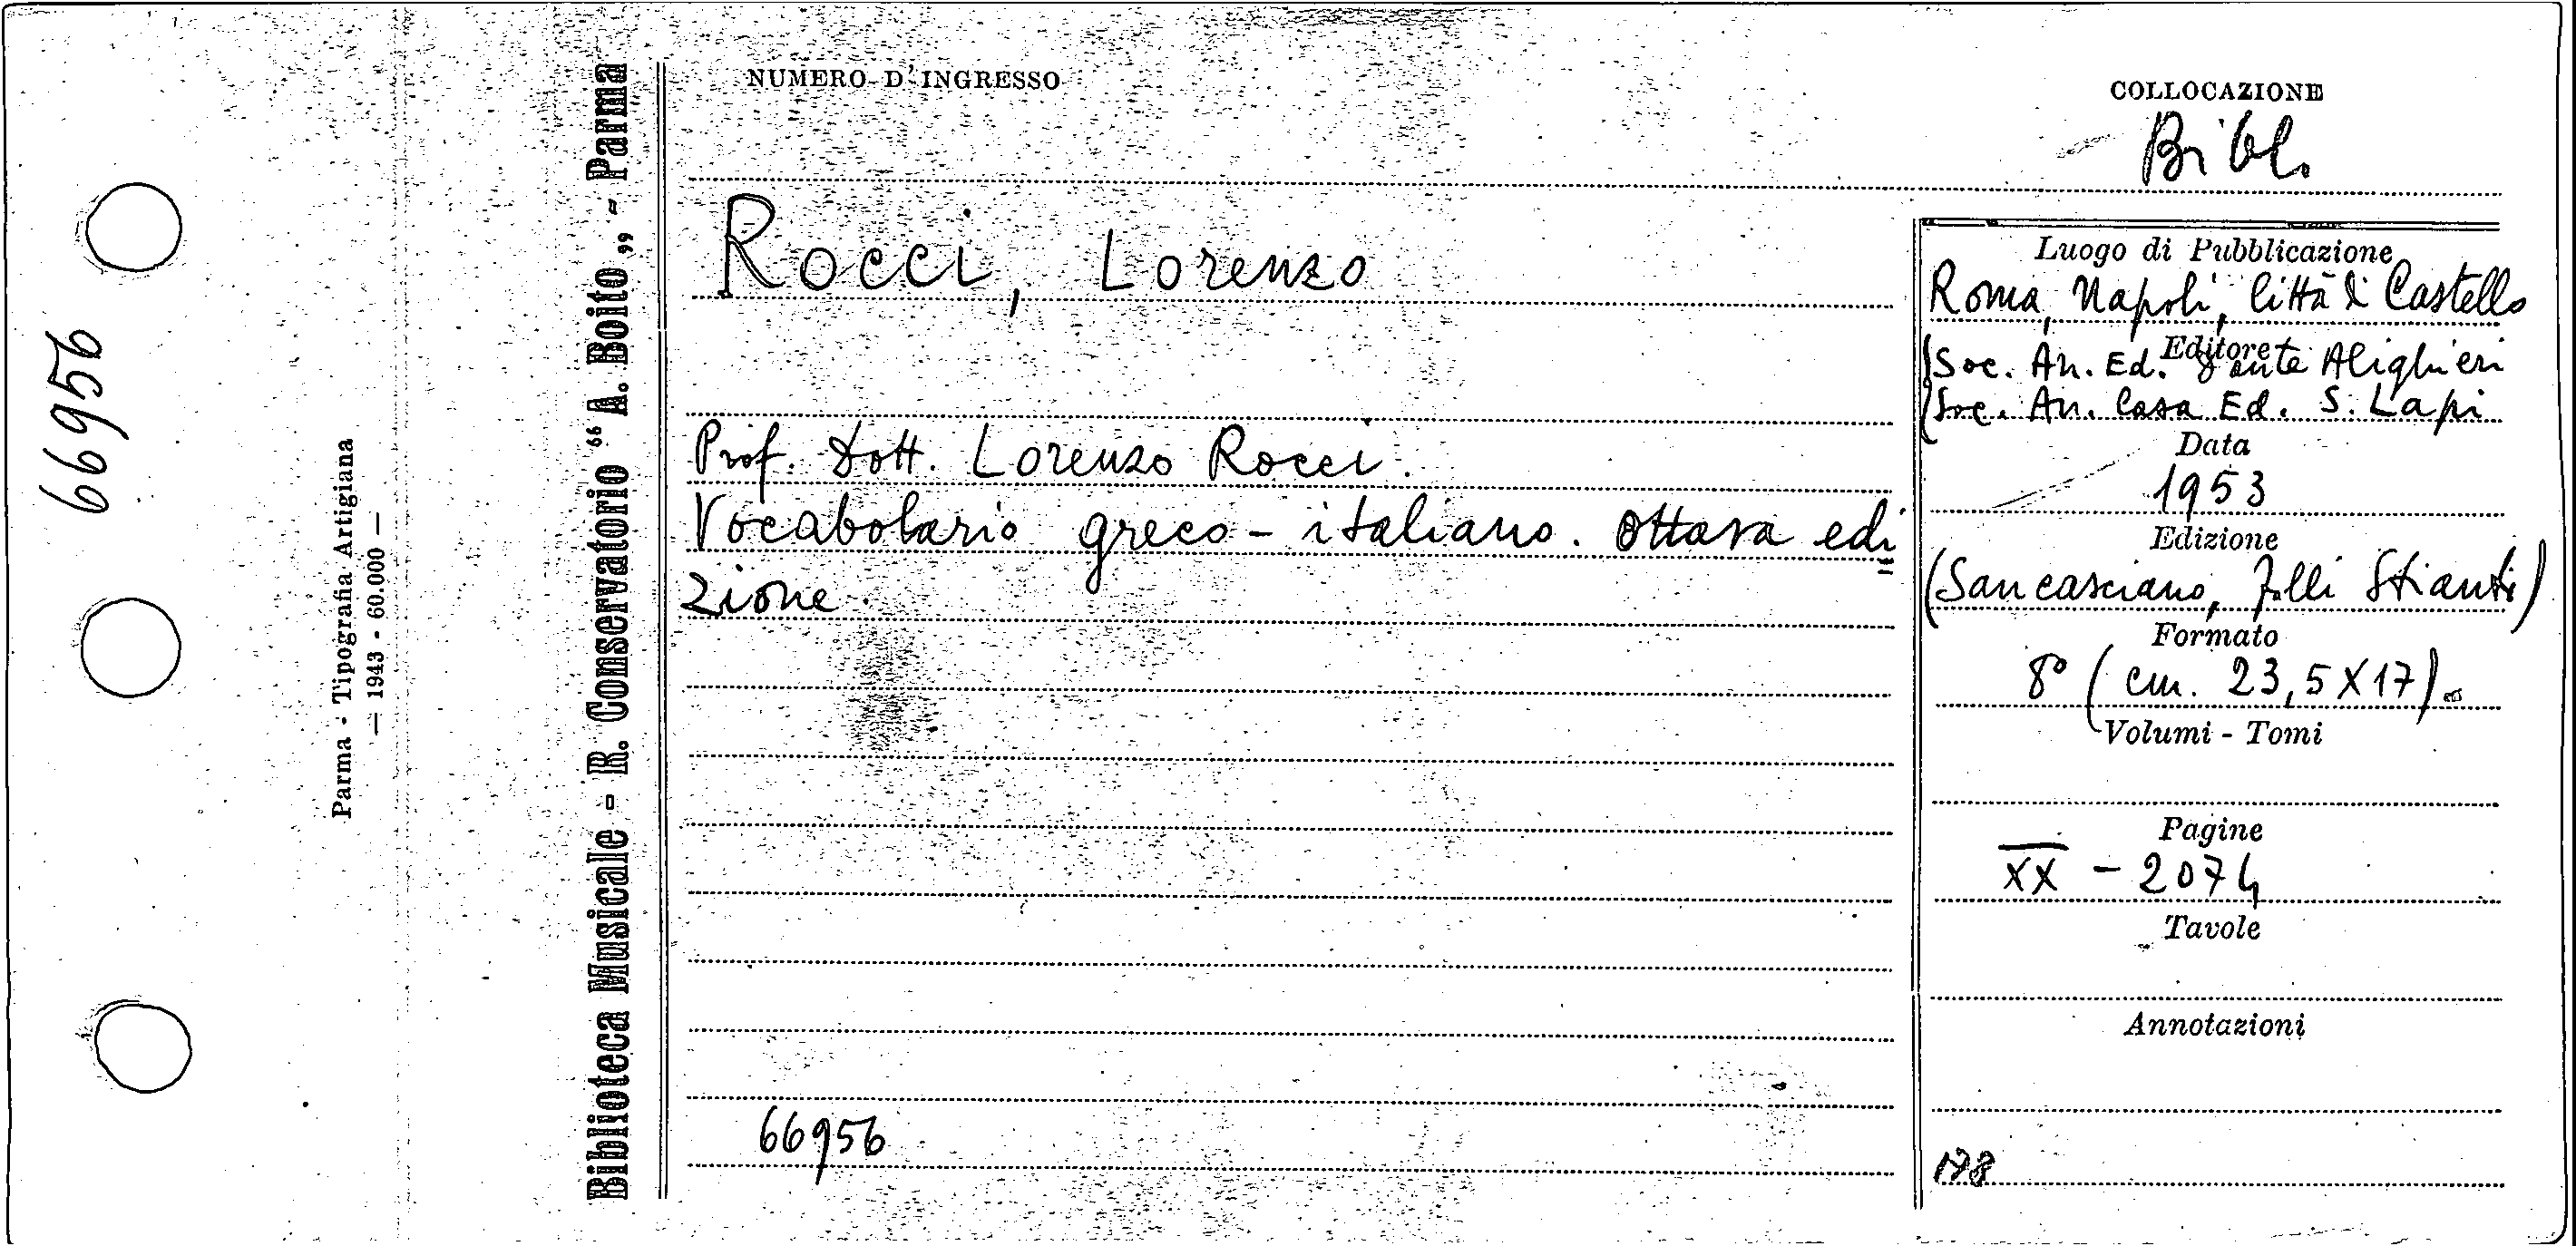 NUMERO D'INGRESSO
COLLOCAZIONE
Bibl.
Rocci, Lorenzo
Prof. Dott. Lorenzo Rocci.
Vocabolario greco-italiano. Ottava edi
zione.
66956
Luogo di Pubblicazione
Roma, Napoli, Città di Castello
Editore
Soc. An. Ed. Dante Alighieri
Soc. An. Casa Ed. S. Lapi
Data
1953
Edizione
(San Casciano, F.lli Stianti)
Formato
8° (cm. 23,5X17).
Volumi - Tomi
Pagine
XX - 2074
Tavole
Annotazioni
198
Biblioteca Musicale - R. Conservatorio “A. Boito„ - Parma
Parma - Tipografia Artigiana
— 1943 - 60.000 —
66956